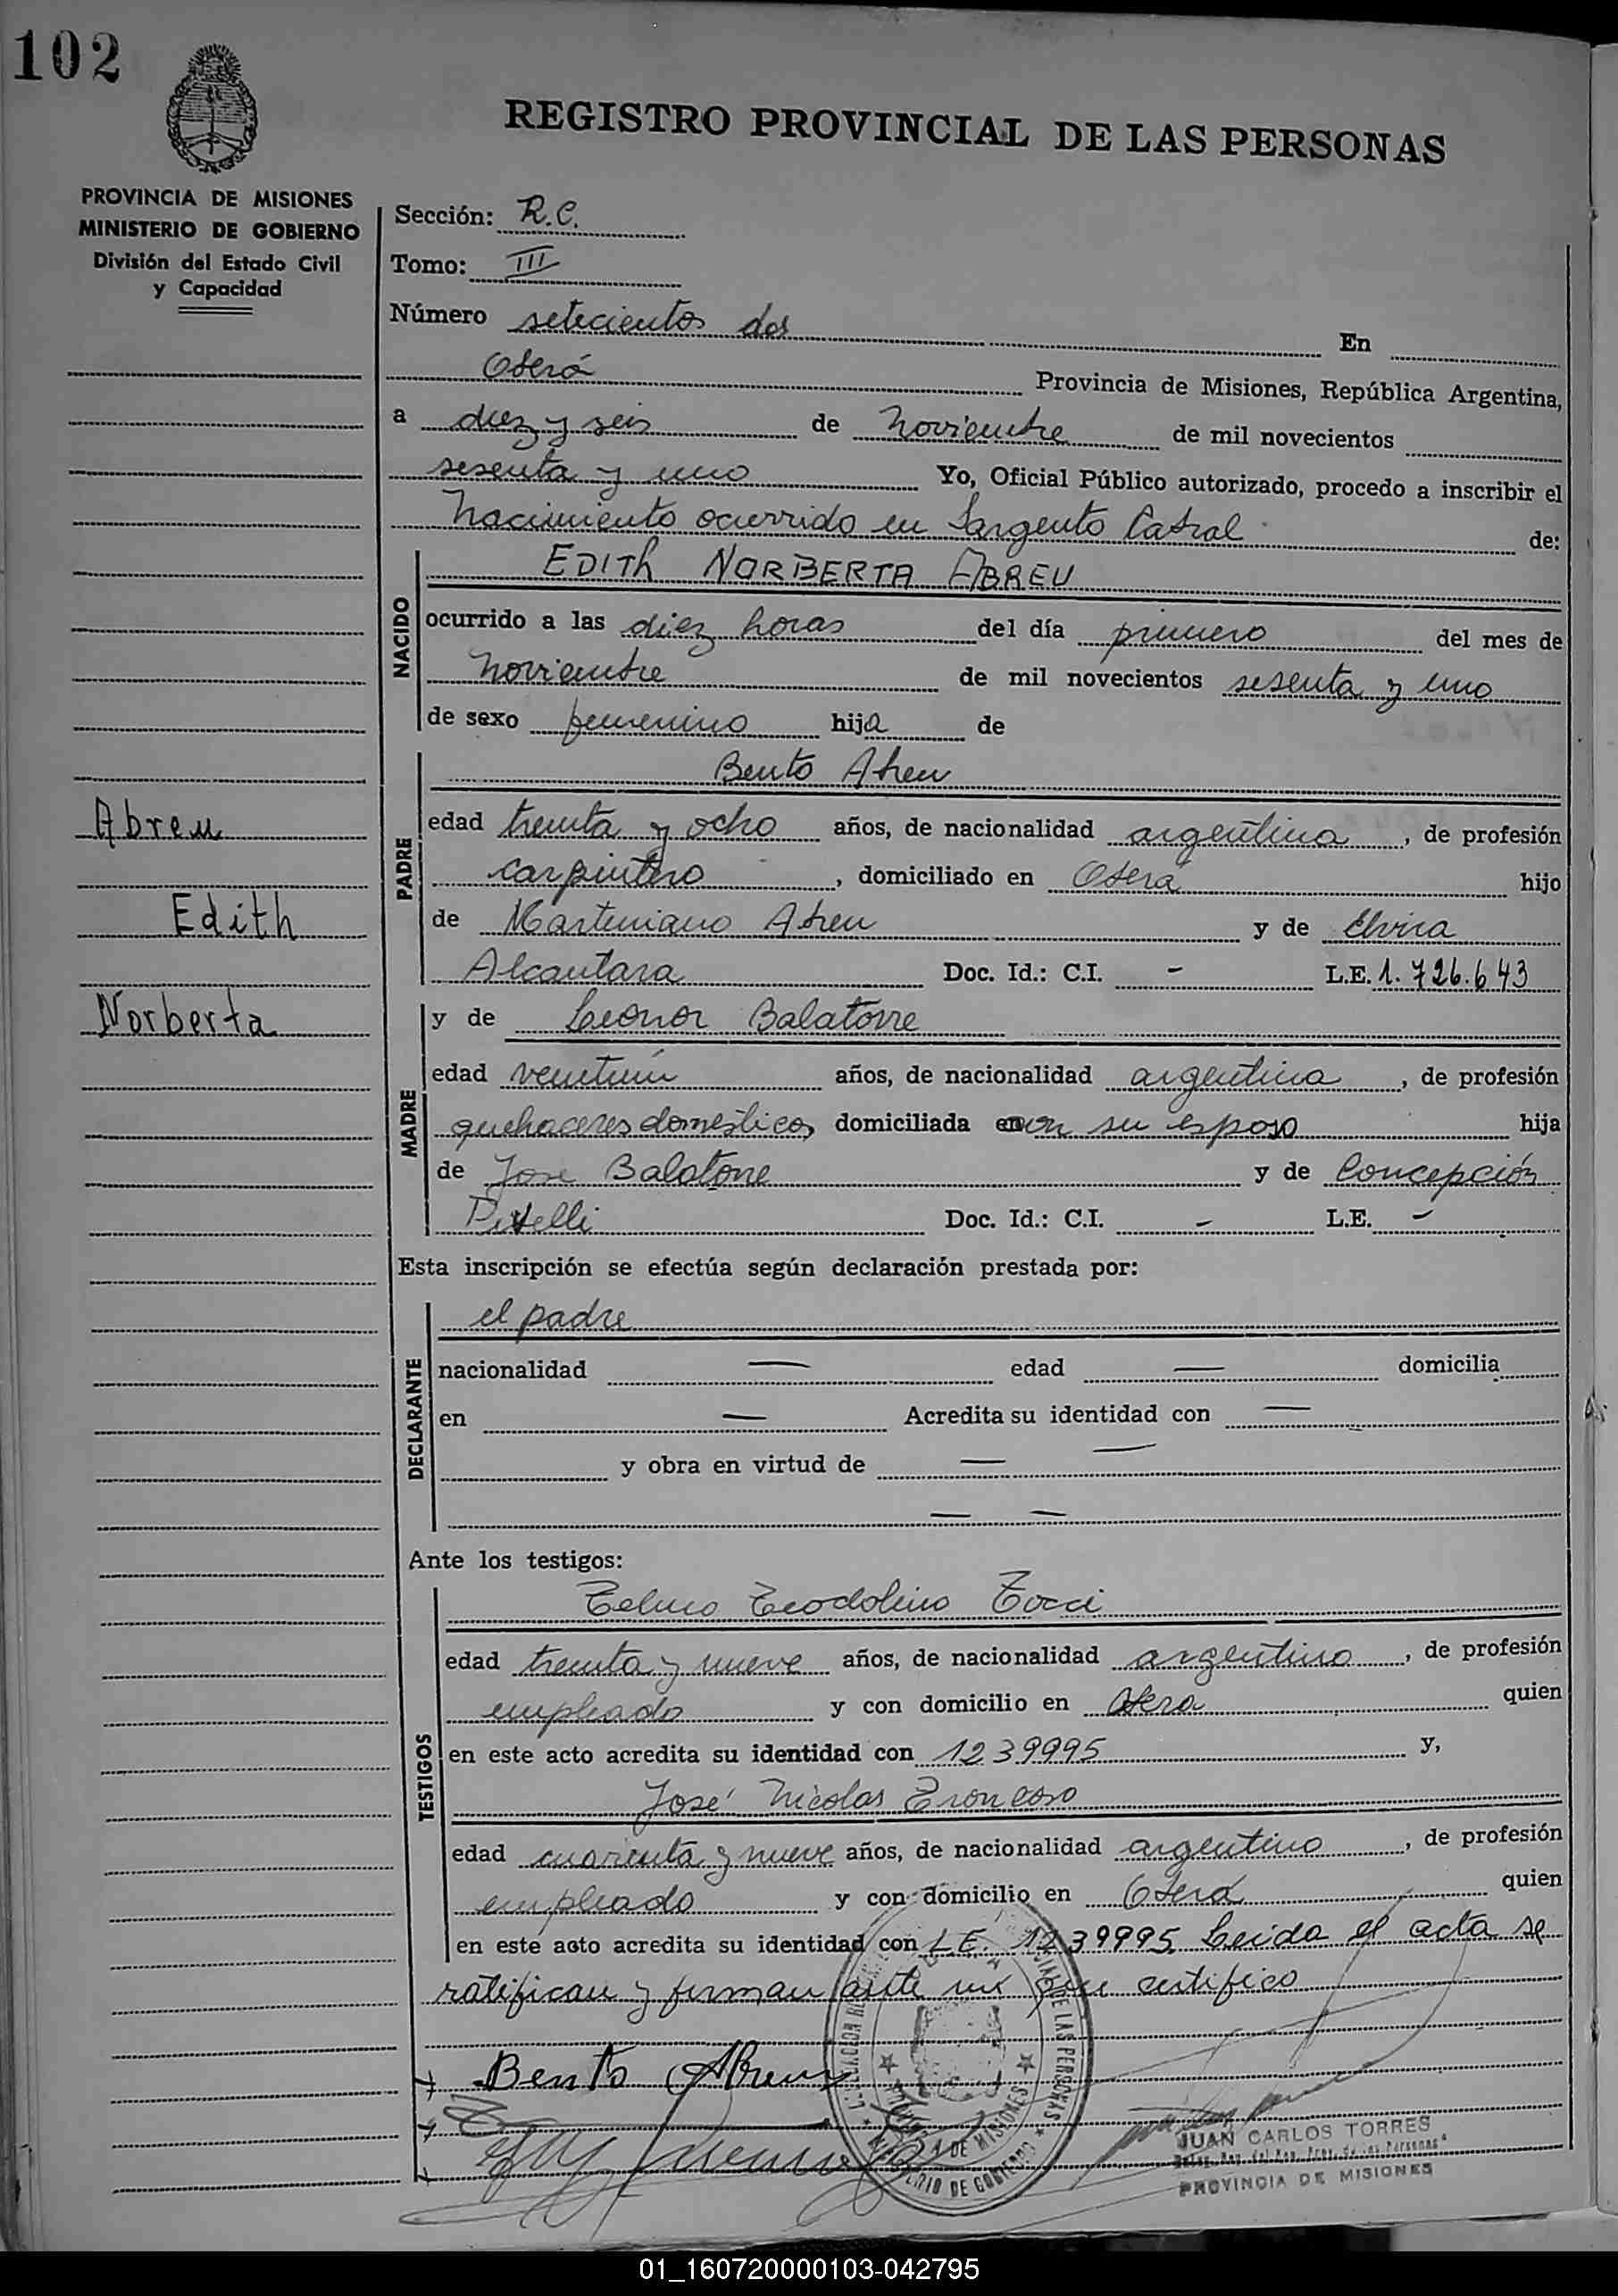 102
REGISTRO PROVINCIAL DE LAS PERSONAS
PROVINCIA DE MISIONES
MINISTERIO DE GOBIERNO
División del Estado Civil
y Capacidad
Sección: R.C.
Tomo: III
Número setecientos dos En
Oberá Provincia de Misiones, República Argentina,
a diez y seis de noviembre de mil novecientos
sesenta y uno Yo, Oficial Público autorizado, procedo a inscribir el
nacimiento ocurrido en Sargento Cabral de:
NACIDO
EDITh NORBERTA ABREU
ocurrido a las diez horas del día primero del mes de
noviembre de mil novecientos sesenta y uno
de sexo femenino hija de
PADRE
Bento Abreu
edad treinta y ocho años, de nacionalidad argentina, de profesión
carpintero, domiciliado en Obera hijo
de Marteniano Abreu y de Elvira
Alcantara Doc. Id.: C.I. - L.E. 1.726.643
Abreu
Edith
Norberta
MADRE
y de Leonor Balatorre
edad veintiún años, de nacionalidad argentina, de profesión
quehaceres domesticos domiciliada con su esposo hija
de Jose Balatorre y de Concepción
Doc. Id.: C.I. - L.E. -
Esta inscripción se efectúa según declaración prestada por:
DECLARANTE
el padre
nacionalidad — edad — domicilia
en — Acredita su identidad con —
y obra en virtud de — —
— —
Ante los testigos:
TESTIGOS
Telmo Teodolino Tocci
edad treinta y nueve años, de nacionalidad argentino, de profesión
empleado y con domicilio en Obera quien
en este acto acredita su identidad con 1239995 y,
José Nicolas Troncoso
edad cuarenta y nueve años, de nacionalidad argentino, de profesión
empleado y con domicilio en Oberá quien
en este acto acredita su identidad con L.E. 1239995 Leida el acta se
ratifican y firman ante mi que certifico
Bento Abreu
DE LAS PERSONAS
DE MISIONES
MINISTERIO DE GOBIERNO
JUAN CARLOS TORRES
PROVINCIA DE MISIONES
01_160720000103-042795